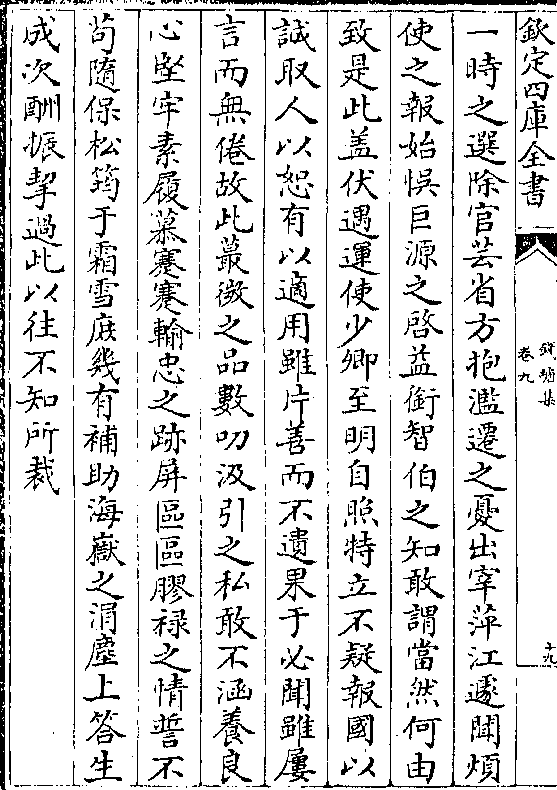 欽定四庫全書
錢塘集
卷九
十九
一時之選除官芸省方抱濫遷之憂出宰萍江遽聞煩
使之報始悞巨源之啓益銜智伯之知敢謂當然何由
致是此盖伏遇運使少卿至明自照特立不疑報國以
誠取人以恕有以適用雖片善而不遺果于必聞雖屢
言而無倦故此蕞微之品數叨汲引之私敢不涵養良
心堅牢素履慕蹇蹇輸忠之跡屏區區膠禄之情誓不
茍隨保松筠于霜雪庶幾有補助海嶽之涓塵上答生
成次酬振挈過此以往不知所裁